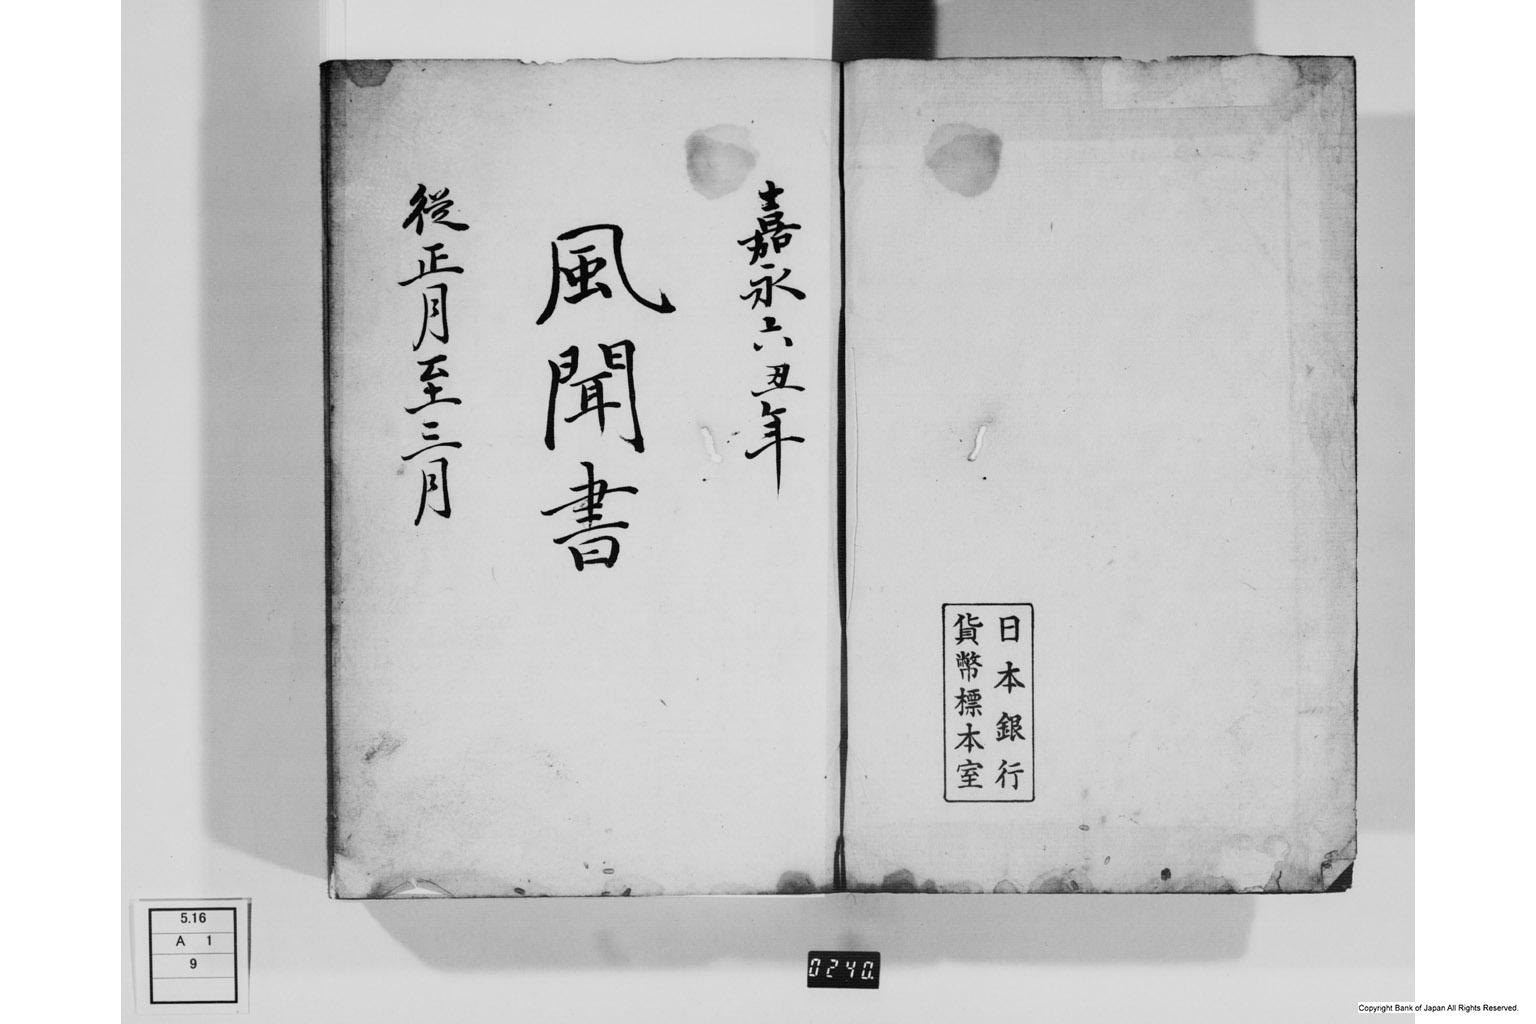 日本銀行
貨幣標本室
嘉永六丑年
風聞書
従正月至三月
5.16
A 1
9
0240.
Copyright Bank of Japan All Rights Reserved.